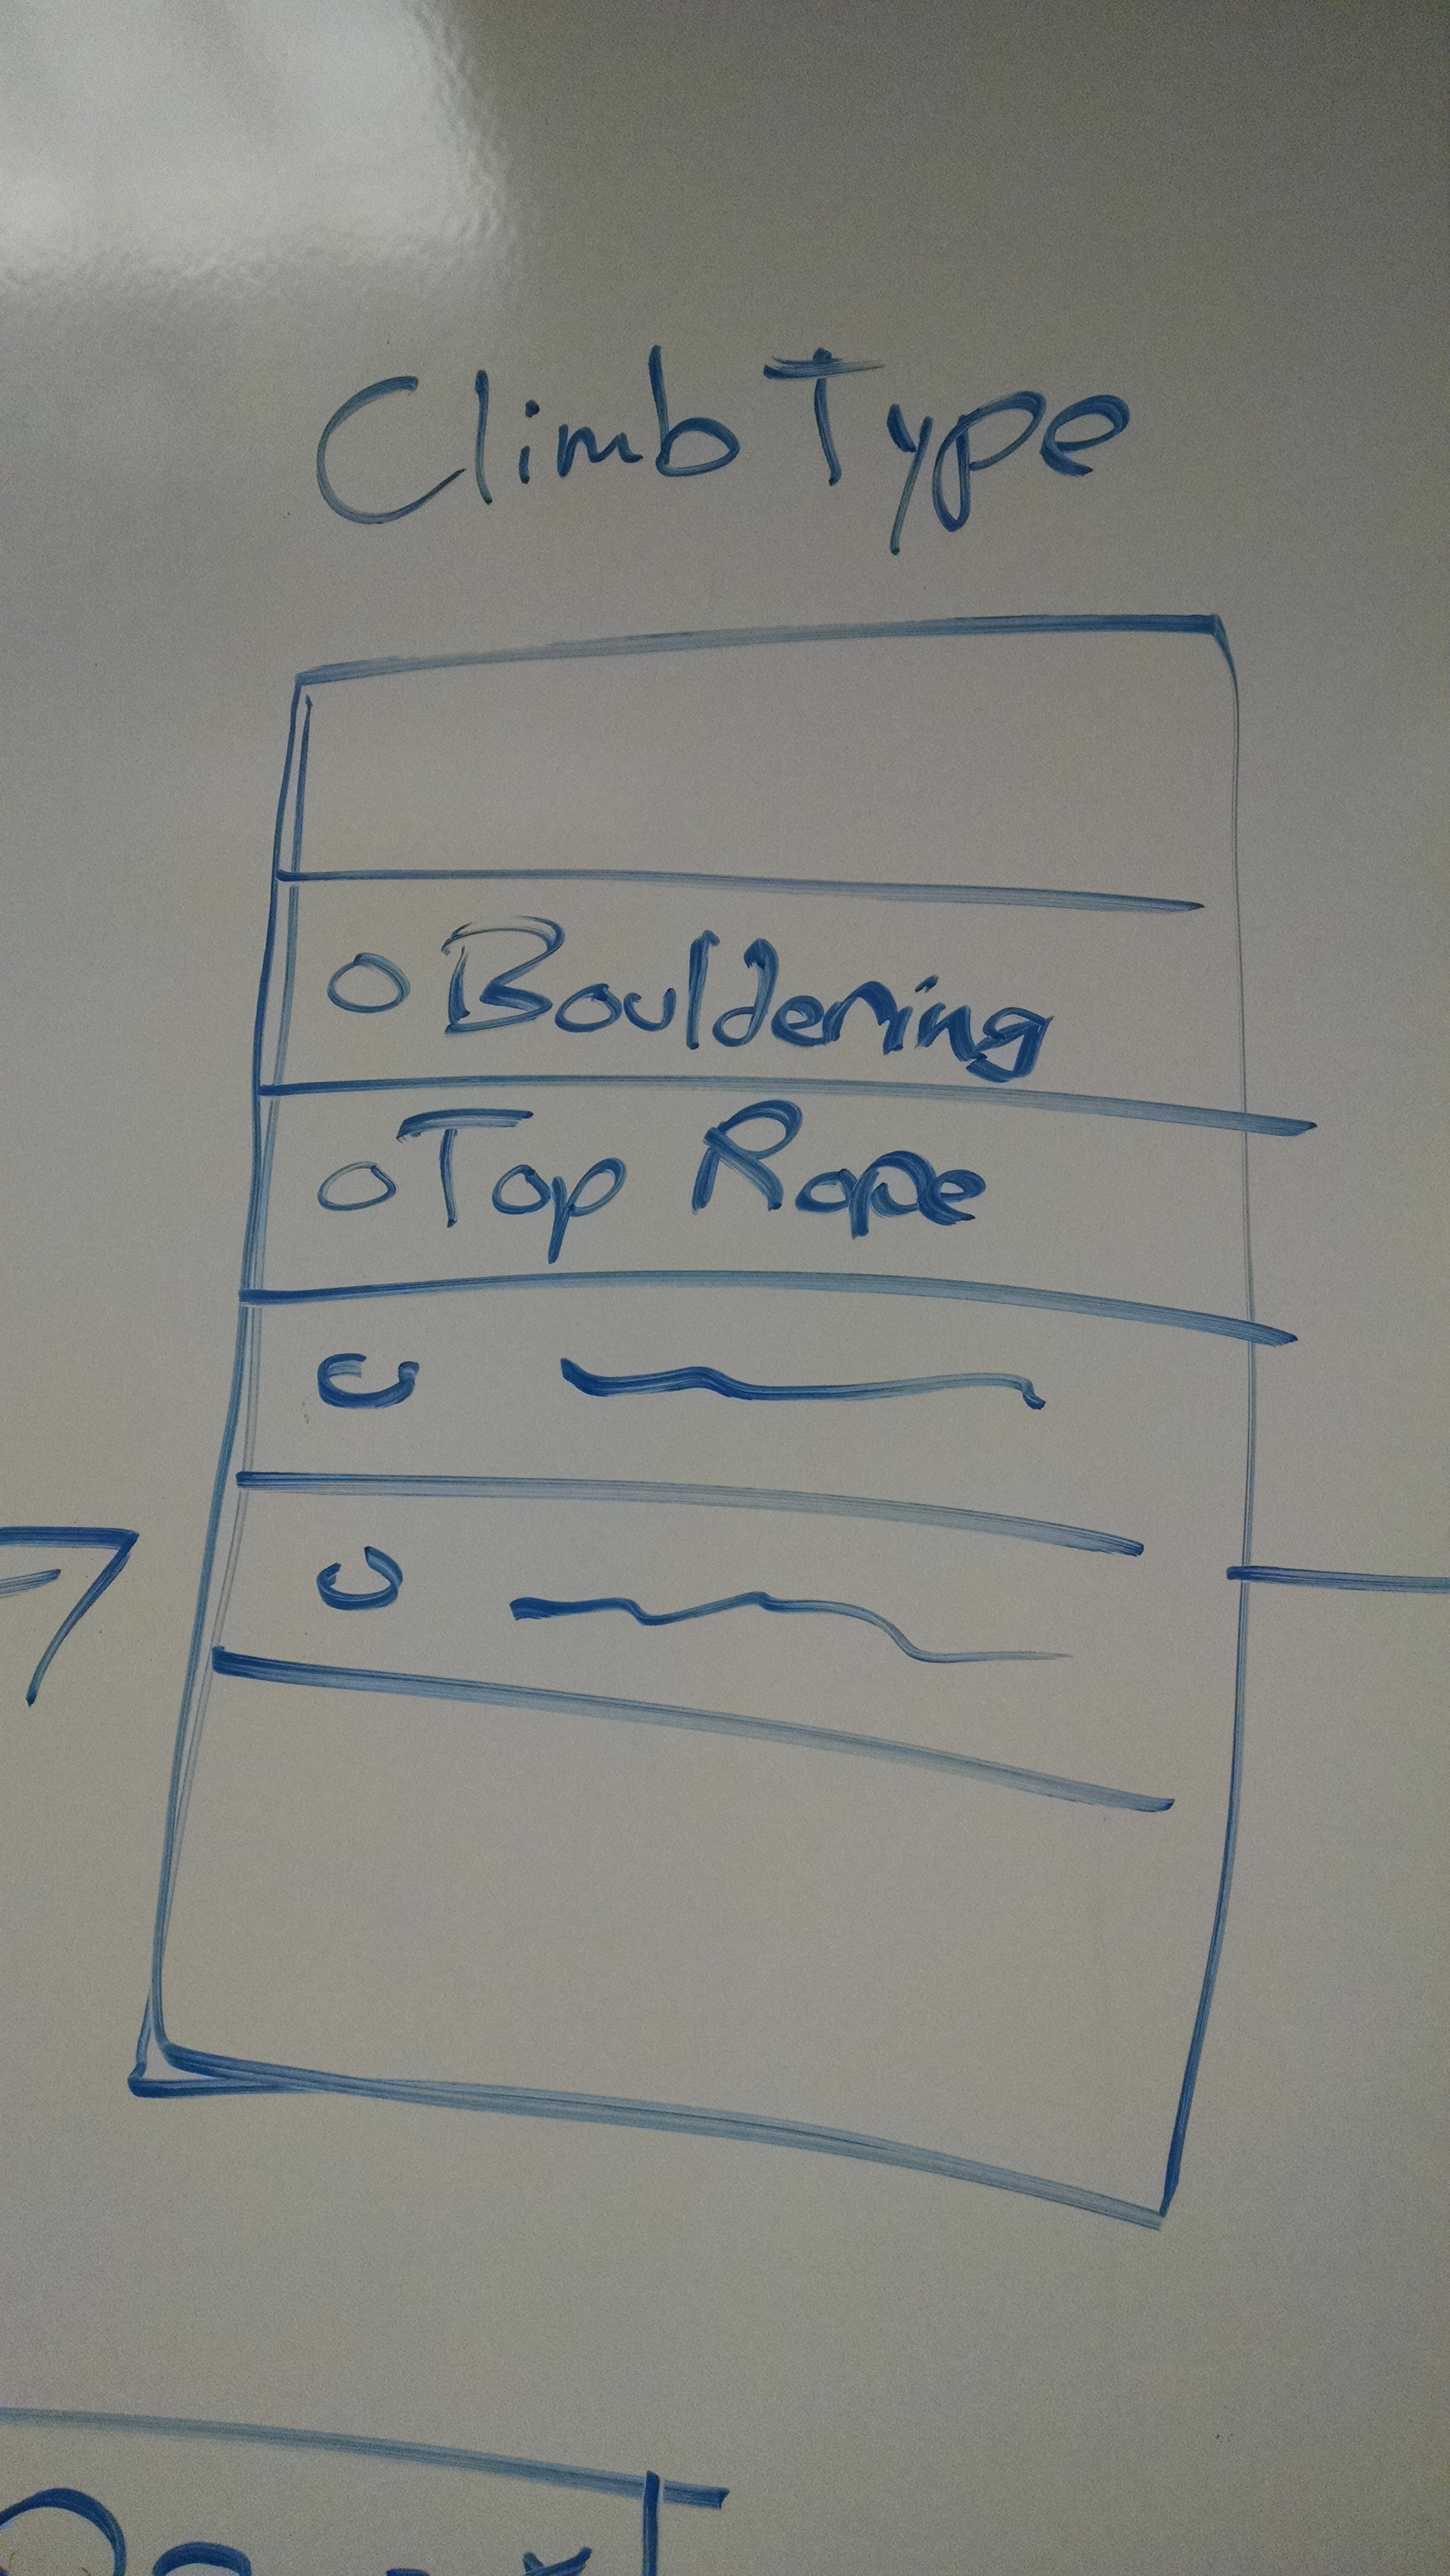 Climb Type
Bouldering
Top Rope